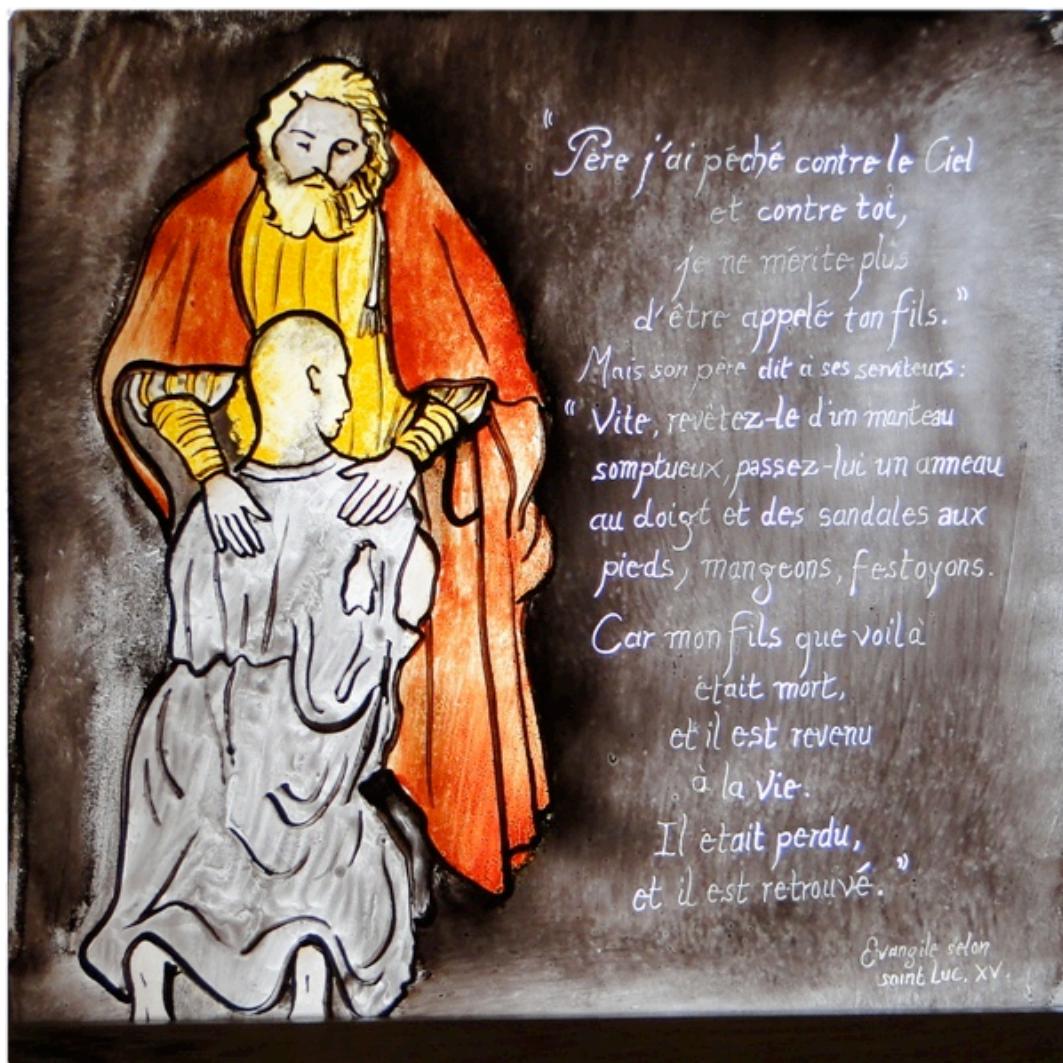 “ Père j'ai péché contre le Ciel
et contre toi,
je ne mérite plus
d'être appelé ton fils.”
Mais son père dit à ses serviteurs :
“ Vite, revêtez-le d'un manteau
somptueux, passez-lui un anneau
au doigt et des sandales aux
pieds, mangeons, festoyons.
Car mon fils que voilà
était mort,
et il est revenu
à la vie.
Il était perdu,
et il est retrouvé.”
Evangile selon
saint Luc. XV.